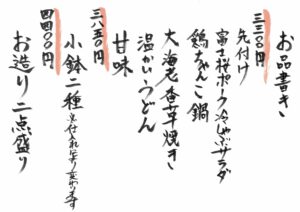 お品書き
三三〇〇円
先付け
富士桜ポーク冷しゃぶサラダ
鶏ちゃんこ鍋
大海老香草焼き
温かいうどん
甘味
三八五〇円
小鉢二種
※仕入れにより変わります
四四〇〇円
お造り二点盛り